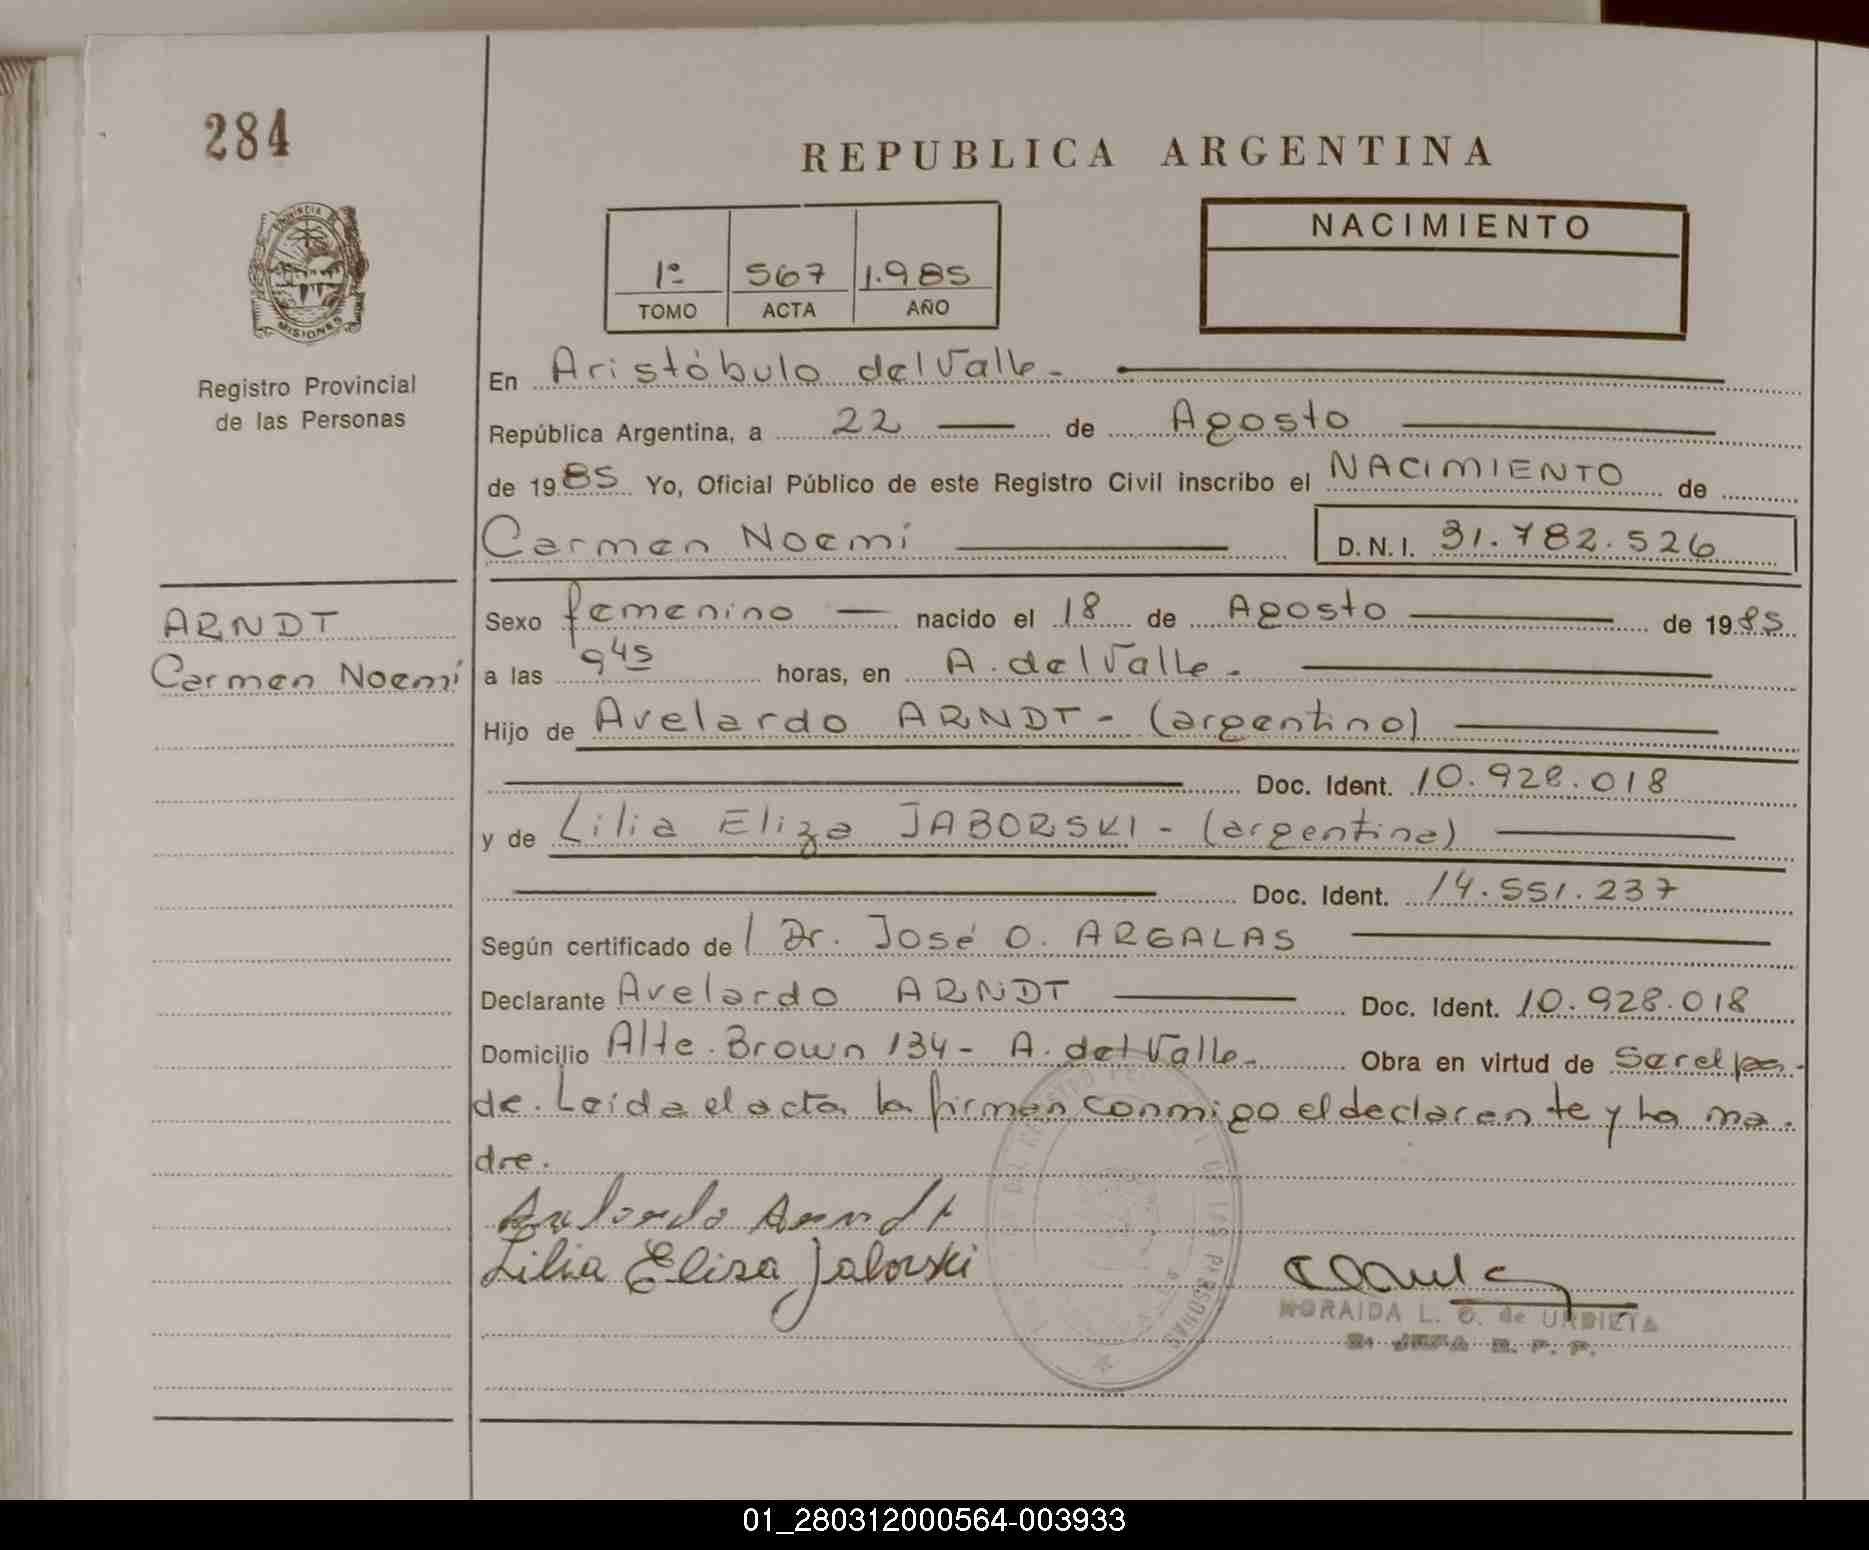 284
REPUBLICA ARGENTINA
PROVINCIA DE MISIONES
Registro Provincial
de las Personas
1º 567 1.985
TOMO ACTA AÑO
NACIMIENTO
En Aristóbulo del Valle.
República Argentina, a 22 de Agosto
de 1985 Yo, Oficial Público de este Registro Civil inscribo el NACIMIENTO de
Carmen Noemí D.N.I. 31.782.526
ARNDT
Carmen Noemí
Sexo femenino nacido el 18 de Agosto de 1985
a las 9 45 horas, en A. del Valle.
Hijo de Avelardo ARNDT - (argentino)
Doc. Ident. 10.928.018
y de Lilia Eliza JABORSKI - (argentina)
Doc. Ident. 14.551.237
Según certificado de Dr. José O. ARGALAS
Declarante Avelardo ARNDT Doc. Ident. 10.928.018
Domicilio Alte. Brown 134 - A. del Valle. Obra en virtud de Ser el pa-
dre. Leída el acta la firman conmigo el declarante y la ma-
dre.
Arndt
Lilia Elisa Jaborski
NORAIDA L. O. de URDIETA
JEFA R. P. P.
DEL REGISTRO PROVINCIAL DE LAS PERSONAS
01_280312000564-003933